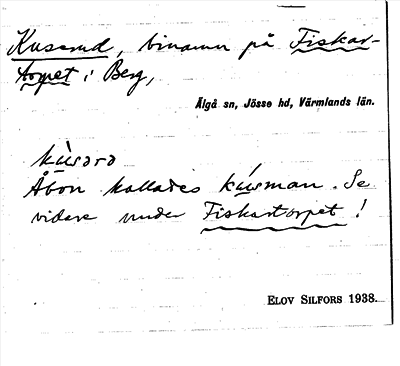 Kuserud, binamn på Fiskar-
torpet i Berg,
Älgå sn, Jösse hd, Värmlands län.
kùsərə
Åbon kallades kúsman. Se
vidare under Fiskartorpet!
ELOV SILFORS 1938.